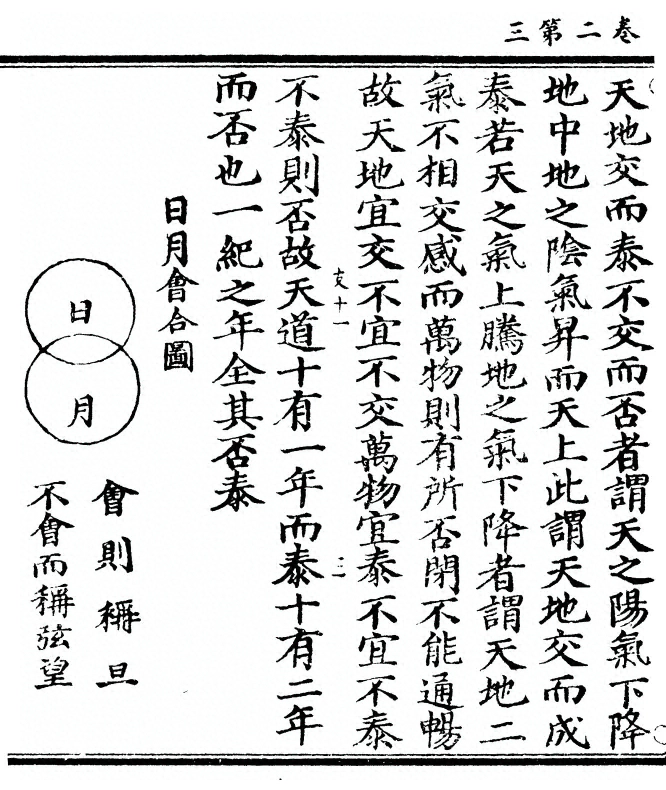 卷二第三
天地交而泰不交而否者謂天之陽氣下降
地中地之陰氣昇而天上此謂天地交而成
泰若天之氣上騰地之氣下降者謂天地二
氣不相交感而萬物則有所否閉不能通暢
故天地宜交不宜不交萬物宜泰不宜不泰
支十一
不泰則否故天道十有一年而泰十有二年
而否也一紀之年全其否泰
日月會合圖
日
月
會則稱旦
不會而稱弦望